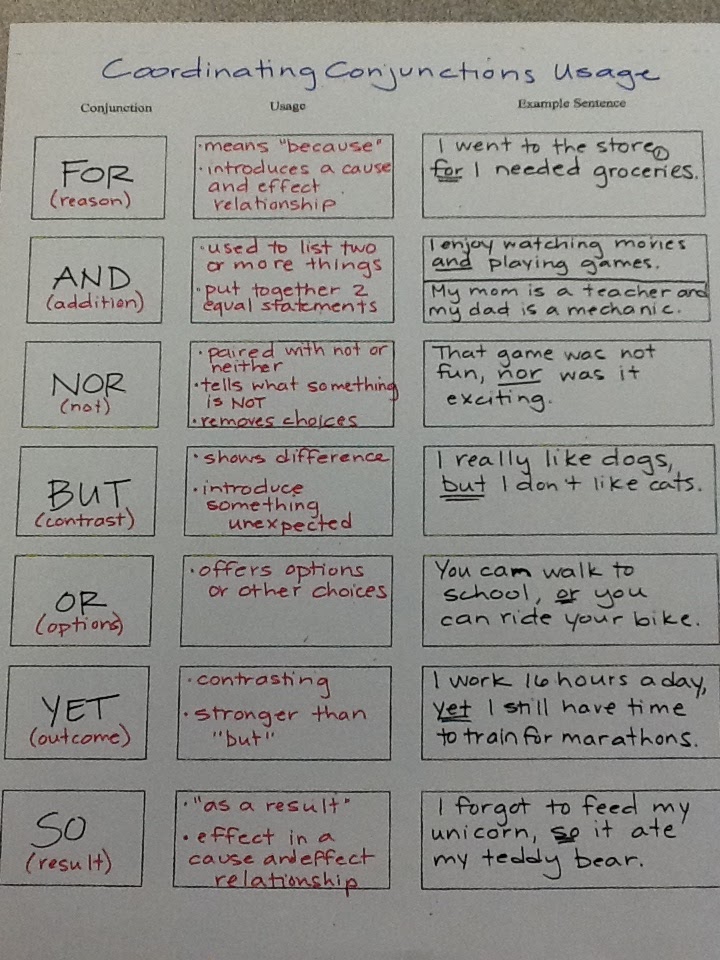 Coordinating Conjunctions Usage
Conjunction Usage Example Sentence
FOR
(reason)
• means "because"
• introduces a cause
and effect
relationship
I went to the store,
for I needed groceries.
AND
(addition)
• used to list two
or more things
• put together 2
equal statements
I enjoy watching movies
and playing games.
My mom is a teacher and
my dad is a mechanic.
NOR
(not)
• paired with not or
neither
• tells what something
is NOT
• removes choices
That game was not
fun, nor was it
exciting.
BUT
(contrast)
• shows difference
• introduce
something
unexpected
I really like dogs,
but I don't like cats.
OR
(options)
• offers options
or other choices
You can walk to
school, or you
can ride your bike.
YET
(outcome)
• contrasting
• stronger than
"but"
I work 16 hours a day,
yet I still have time
to train for marathons.
SO
(result)
• "as a result"
• effect in a
cause and effect
relationship
I forgot to feed my
unicorn, so it ate
my teddy bear.